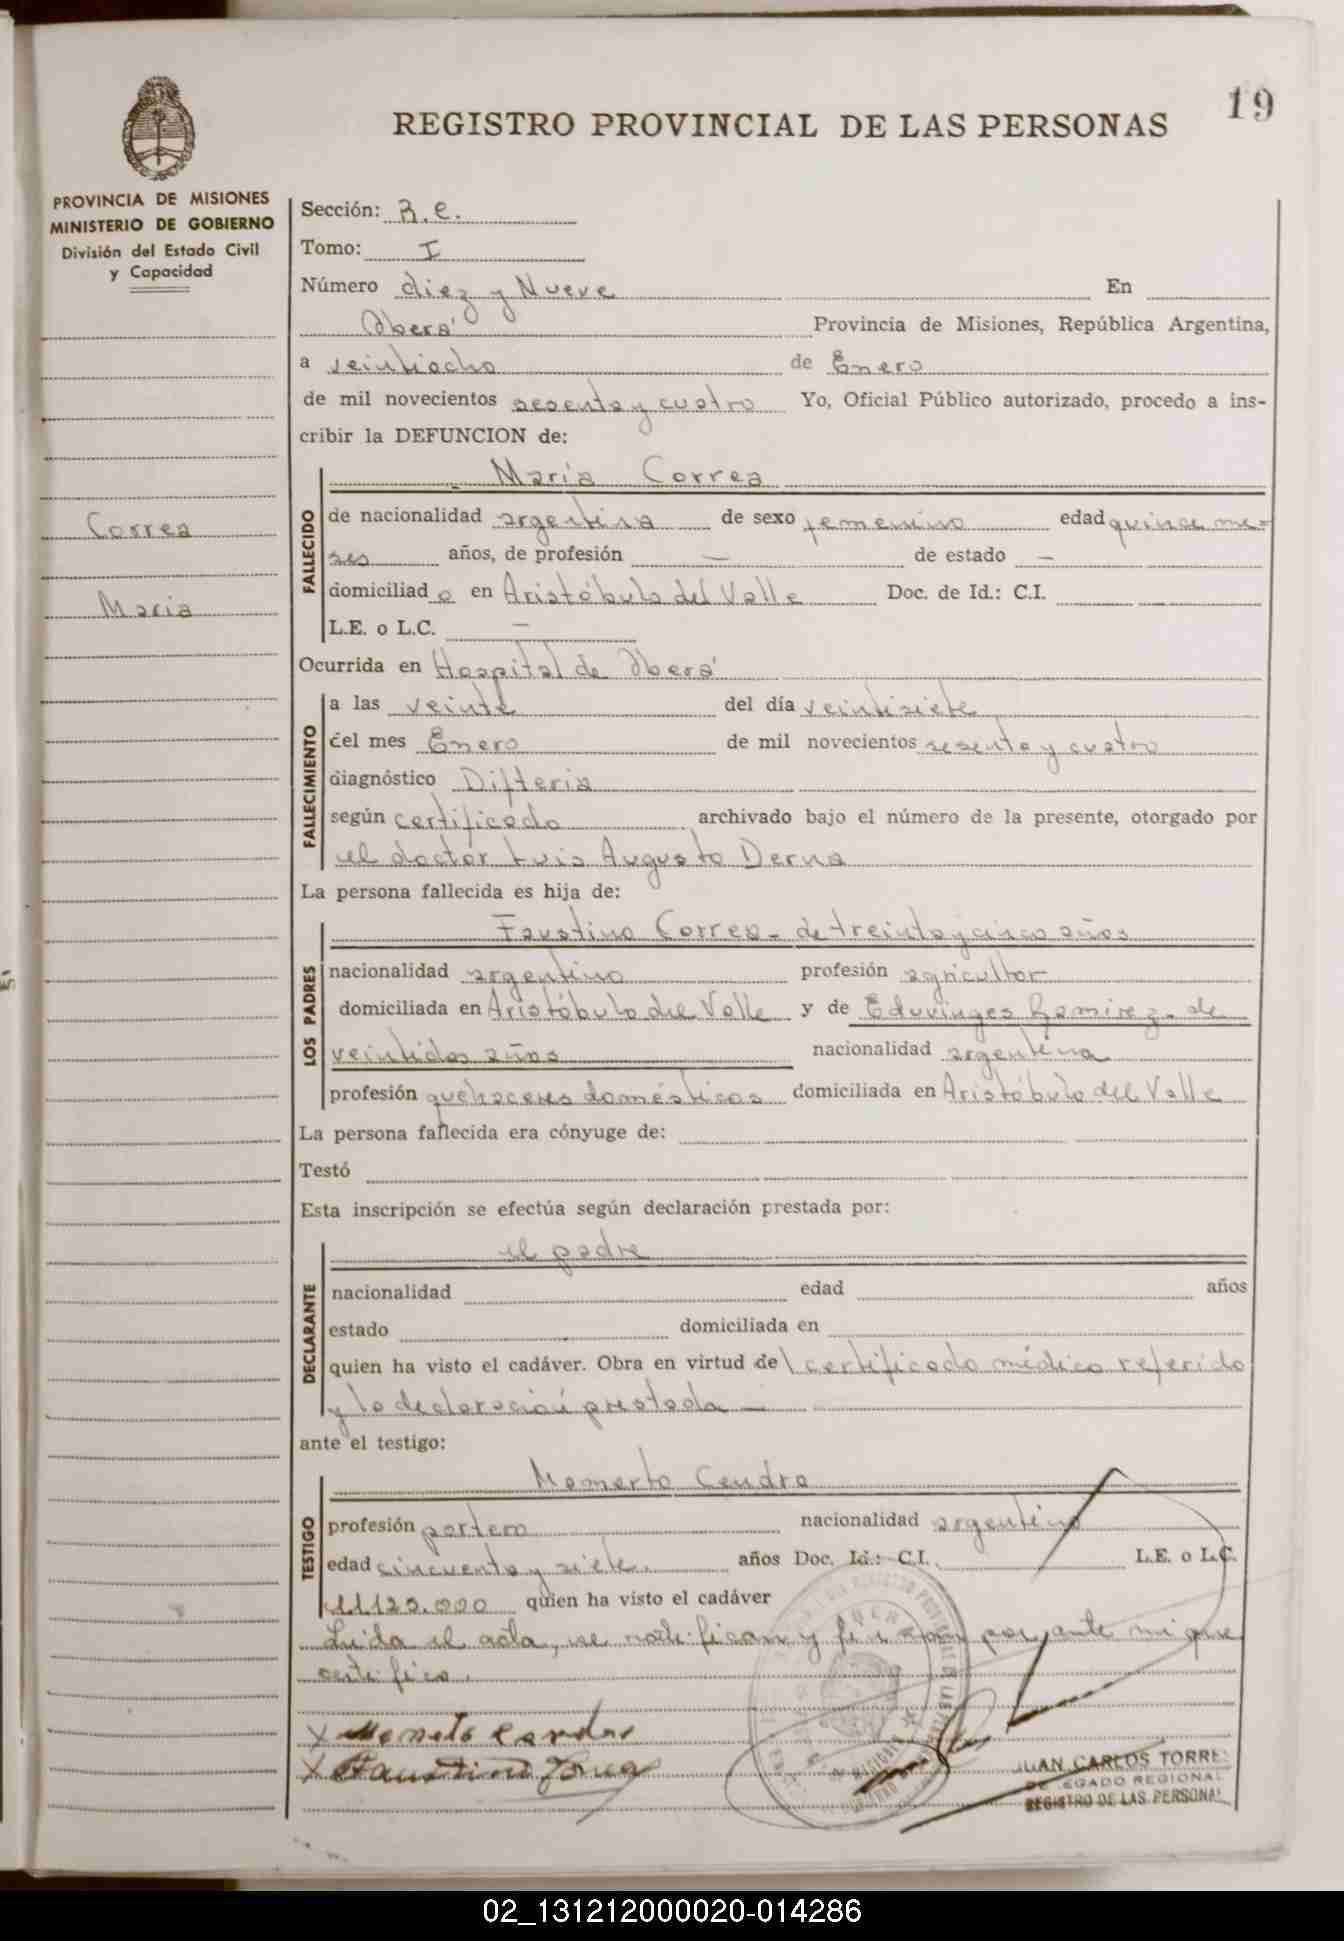 19
REGISTRO PROVINCIAL DE LAS PERSONAS
PROVINCIA DE MISIONES
MINISTERIO DE GOBIERNO
División del Estado Civil
y Capacidad
Correa
Maria
Sección: R.e.
Tomo: I
Número diez y Nueve En
Oberá Provincia de Misiones, República Argentina,
a veintiocho de Enero
de mil novecientos sesenta y cuatro Yo, Oficial Público autorizado, procedo a ins-
cribir la DEFUNCION de:
Maria Correa
FALLECIDO
de nacionalidad argentina de sexo femenino edad quince me-
ses años, de profesión — de estado —
domiciliad a en Aristóbulo del Valle Doc. de Id.: C.I.
L.E. o L.C. —
Ocurrida en Hospital de Oberá
FALLECIMIENTO
a las veinte del día veintisiete
del mes Enero de mil novecientos sesenta y cuatro
diagnóstico Difteria
según certificado archivado bajo el número de la presente, otorgado por
el doctor Luis Augusto Derna
La persona fallecida es hija de:
LOS PADRES
Faustino Correa - de treinta y cinco años
nacionalidad argentino profesión agricultor
domiciliada en Aristóbulo del Valle y de Eduvinges Ramirez - de
veintidos años nacionalidad argentina
profesión quehaceres domésticos domiciliada en Aristóbulo del Valle
La persona fallecida era cónyuge de:
Testó
Esta inscripción se efectúa según declaración prestada por:
DECLARANTE
el padre
nacionalidad edad años
estado domiciliada en
quien ha visto el cadáver. Obra en virtud del certificado médico referido
y la declaración prestada —
ante el testigo:
TESTIGO
Memerto Cendra
profesión portero nacionalidad argentino
edad cincuenta y siete. años Doc. Id.: C.I. L.E. o L.C.
quien ha visto el cadáver
Leida el acta, se notifican y firman por ante mi que
certifico.
Faustino
JUAN CARLOS TORRES
DELEGADO REGIONAL
REGISTRO DE LAS PERSONAS
02_131212000020-014286